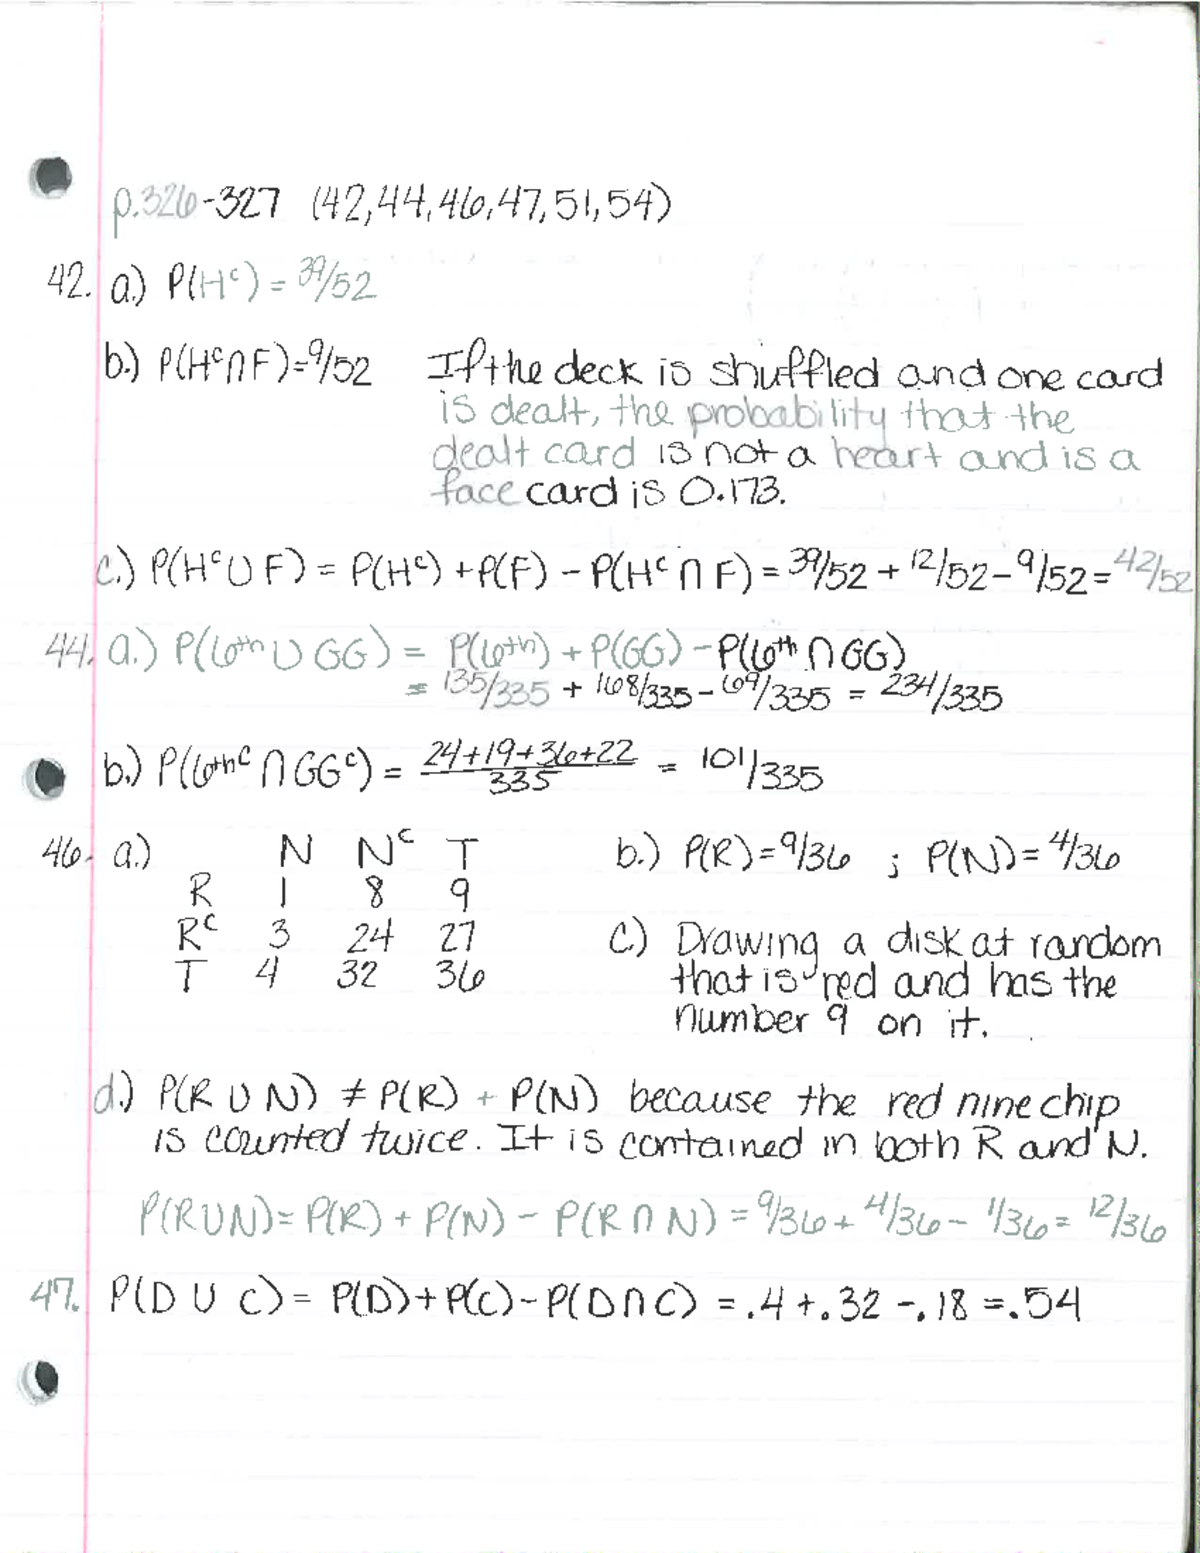 p.326-327 (42,44,46,47,51,54)
42. a.) P(Hᶜ) = 39/52
b.) P(Hᶜ∩F)=9/52 If the deck is shuffled and one card
is dealt, the probability that the
dealt card is not a heart and is a
face card is 0.173.
c.) P(Hᶜ∪F) = P(Hᶜ) + P(F) - P(Hᶜ∩F) = 39/52 + 12/52 - 9/52 = 42/52
44. a.) P(6th ∪ GG) = P(6th) + P(GG) - P(6th ∩ GG)
= 135/335 + 168/335 - 69/335 = 234/335
b.) P(6thᶜ ∩ GGᶜ) = 24+19+36+22/335 = 101/335
46. a.) N Nᶜ T b.) P(R)=9/36 ; P(N)=4/36
R 1 8 9
Rᶜ 3 24 27 c.) Drawing a disk at random
T 4 32 36 that is red and has the
number 9 on it.
d.) P(R ∪ N) ≠ P(R) + P(N) because the red nine chip
is counted twice. It is contained in both R and N.
P(R∪N)= P(R) + P(N) - P(R ∩ N) = 9/36 + 4/36 - 1/36 = 12/36
47. P(D ∪ C) = P(D)+P(C)-P(D∩C) = .4 + .32 - .18 = .54